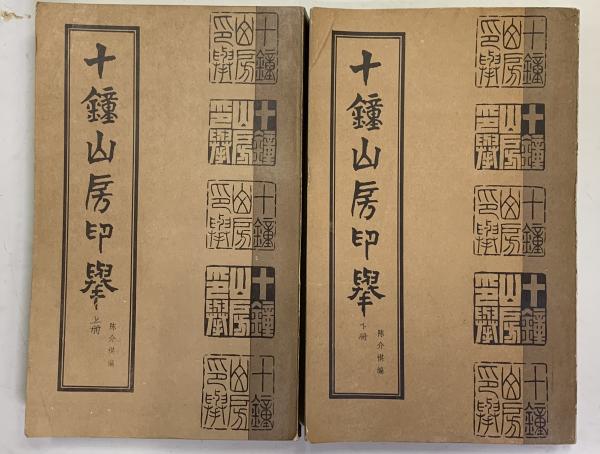 十鐘山房印舉
上册
陈介祺编
十鐘山房印舉
十鐘山房印舉
十鐘山房印舉
十鐘山房印舉
十鐘山房印舉
十鐘山房印舉
下册
陈介祺编
十鐘山房印舉
十鐘山房印舉
十鐘山房印舉
十鐘山房印舉
十鐘山房印舉